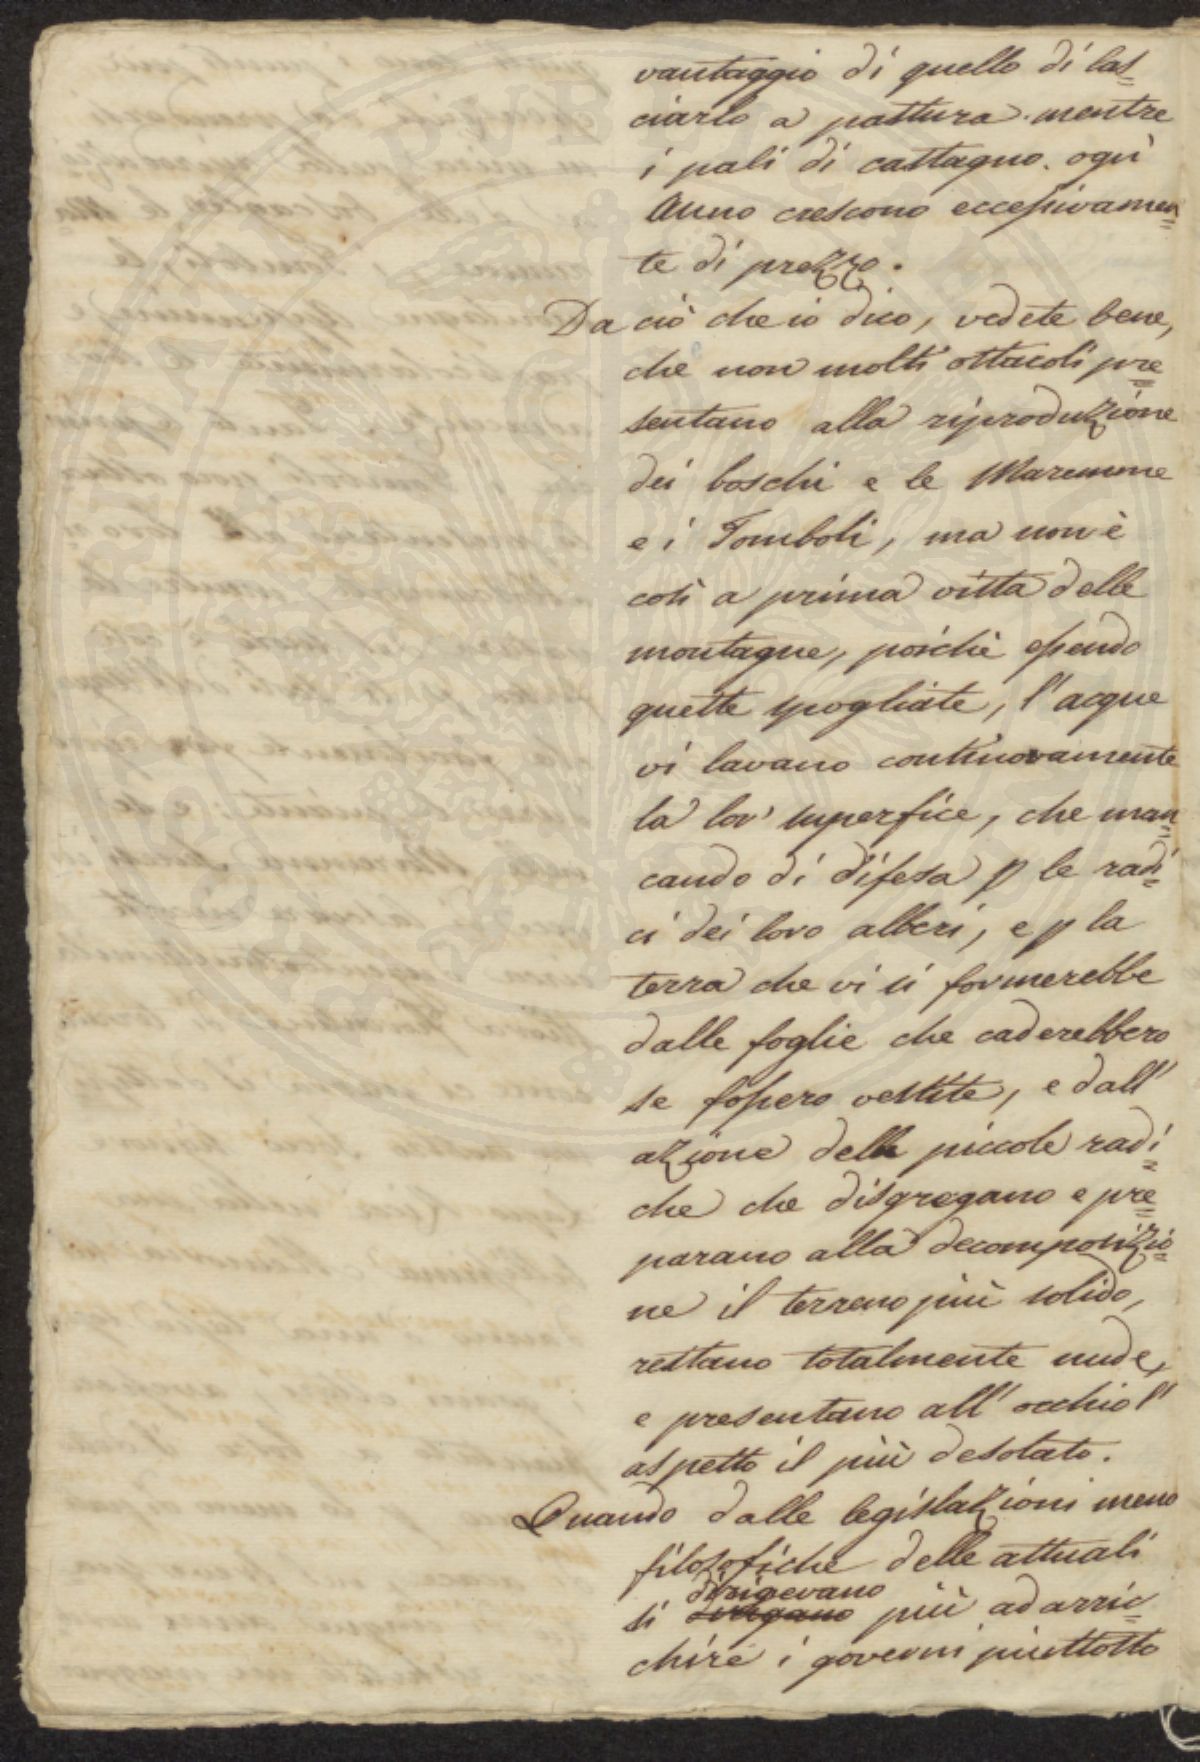 vantaggio di quello di las=
ciarlo a pastura. mentre
i pali di castagno. ogni
Anno crescono eccessivamen=
te di prezzo.
Da ciò che io dico, vedete bene,
che non molti ostacoli pre=
sentano alla riproduzione
dei boschi e le Maremme
e i Tomboli, ma non è
così a prima vista delle
montagne, poichè essendo
queste spogliate, l'acque
vi lavano continovamente
la lor' superfice, che man=
cando di difesa p le radi=
ci dei loro alberi, e p la
terra che vi si formerebbe
dalle foglie che caderebbero
se fossero vestite, e dall'
azione delle piccole radi=
che che disgregano e pre=
parano alla decomposizio=
ne il terreno più solido,
restano totalmente nude,
e presentano all' occhio l'
aspetto il più desolato.
Quando dalle legislazioni meno
filosofiche delle attuali
dirigevano
si più ad arric=
chire i governi piuttosto